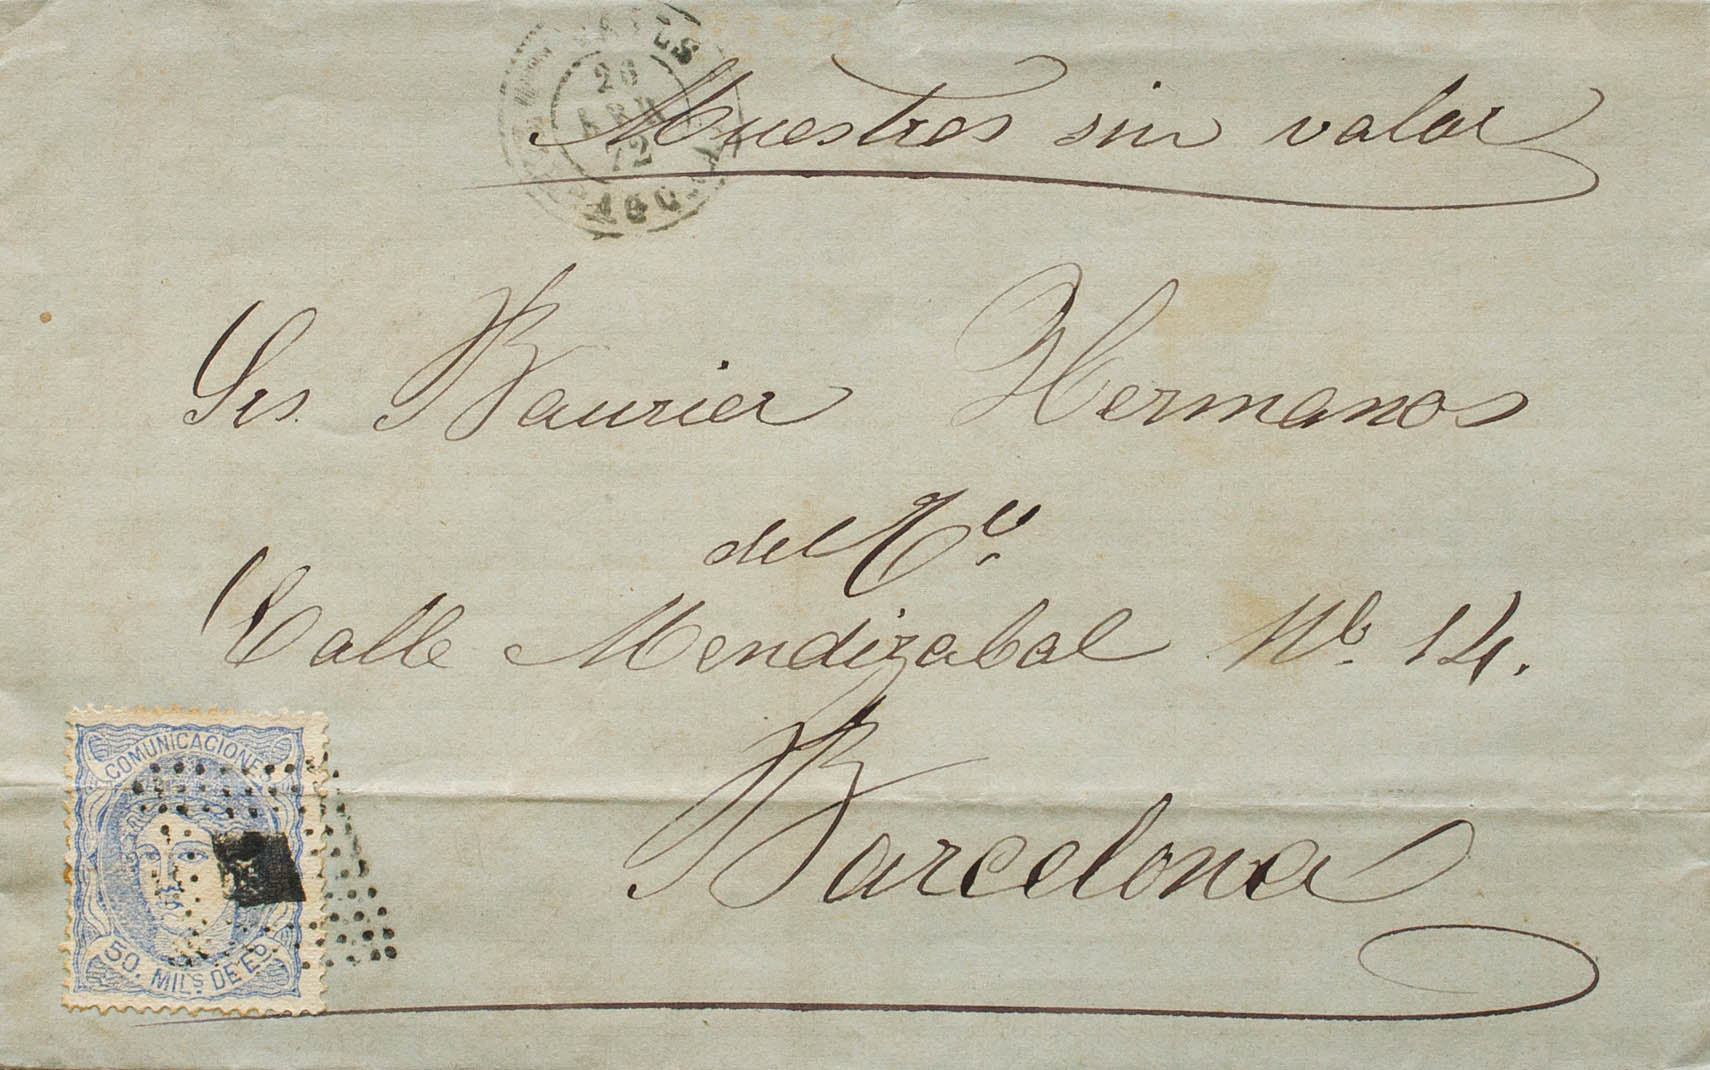 26
72
Muestras sin valor
Srs. Baurier Hermanos
del Cº
Calle Mendizabal Nº 14.
Barcelona
COMUNICACIONES
50. MILS. DE Eº